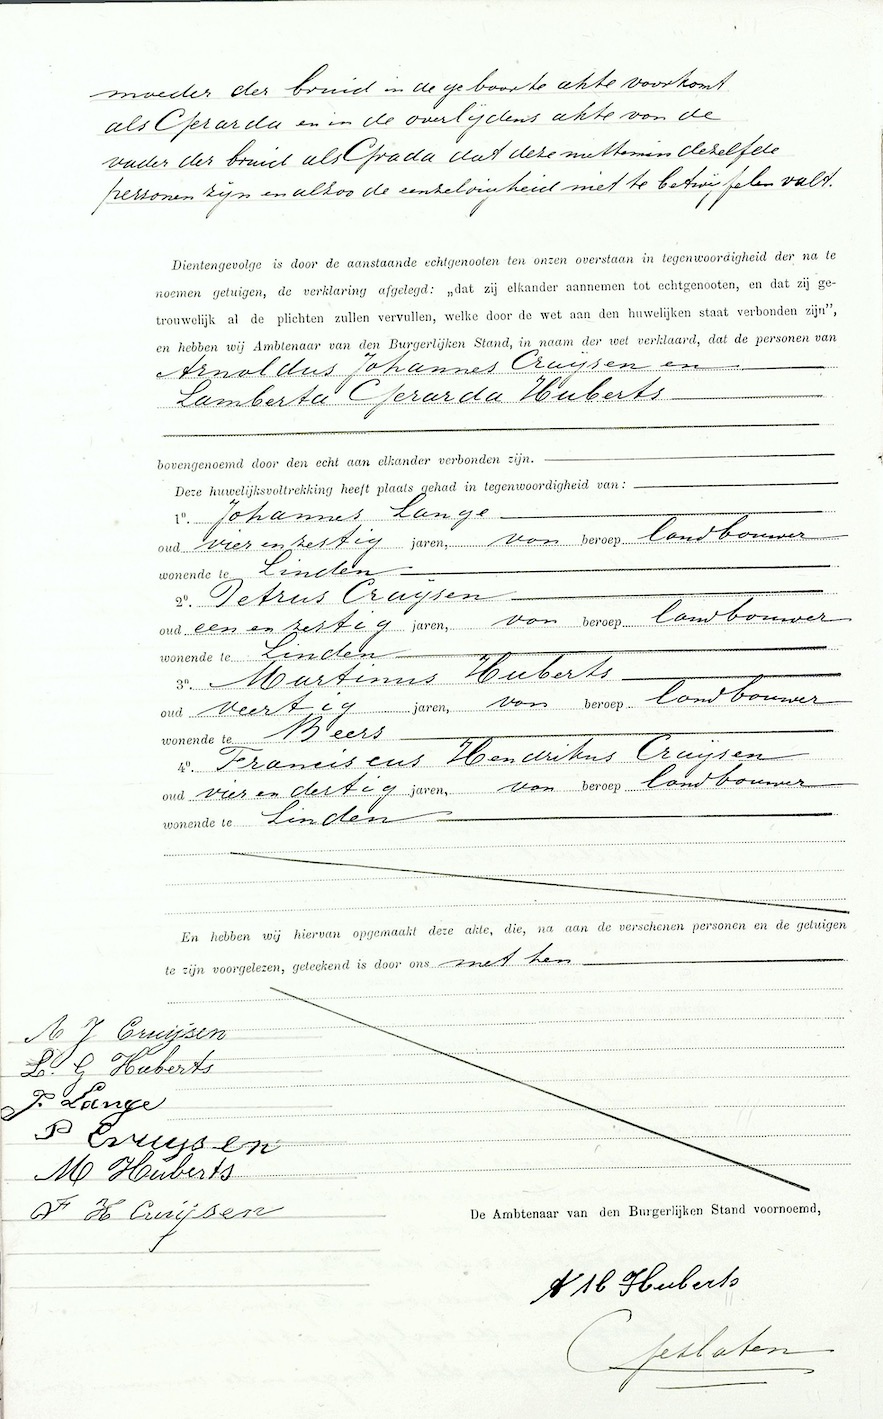 moeder der bruid in de geboorte akte voorkomt
als Gerarda en in de overlijdens akte van de
vader der bruid als Grada dat deze nettemin dezelfde
personen zijn en alzoo de eenzelvigheid niet te betwijfelen valt.
Dientengevolge is door de aanstaande echtgenooten ten onzen overstaan in tegenwoordigheid der na te
noemen getuigen, de verklaring afgelegd: „dat zij elkander aannemen tot echtgenooten, en dat zij ge-
trouwelijk al de plichten zullen vervullen, welke door de wet aan den huwelijken staat verbonden zijn”,
en hebben wij Ambtenaar van den Burgerlijken Stand, in naam der wet verklaard, dat de personen van
Arnoldus Johannes Cruijsen en
Lamberta Gerarda Huberts
bovengenoemd door den echt aan elkander verbonden zijn.
Deze huwelijksvoltrekking heeft plaats gehad in tegenwoordigheid van:
1º. Johannes Lange
oud vier en zestig jaren, van beroep landbouwer
wonende te Linden
2º. Petrus Cruijsen
oud een en zestig jaren, van beroep landbouwer
wonende te Linden
3º. Martinus Huberts
oud veertig jaren, van beroep landbouwer
wonende te Beers
4º. Franciscus Hendrikus Cruijsen
oud vier en dertig jaren, van beroep landbouwer
wonende te Linden
En hebben wij hiervan opgemaakt deze akte, die, na aan de verschenen personen en de getuigen
te zijn voorgelezen, geteekend is door ons met hen
A J Cruijsen
L. G Huberts
J. Lange
P Cruijsen
M Huberts
F H Cruijsen
De Ambtenaar van den Burgerlijken Stand voornoemd,
Huberts
Gesloten